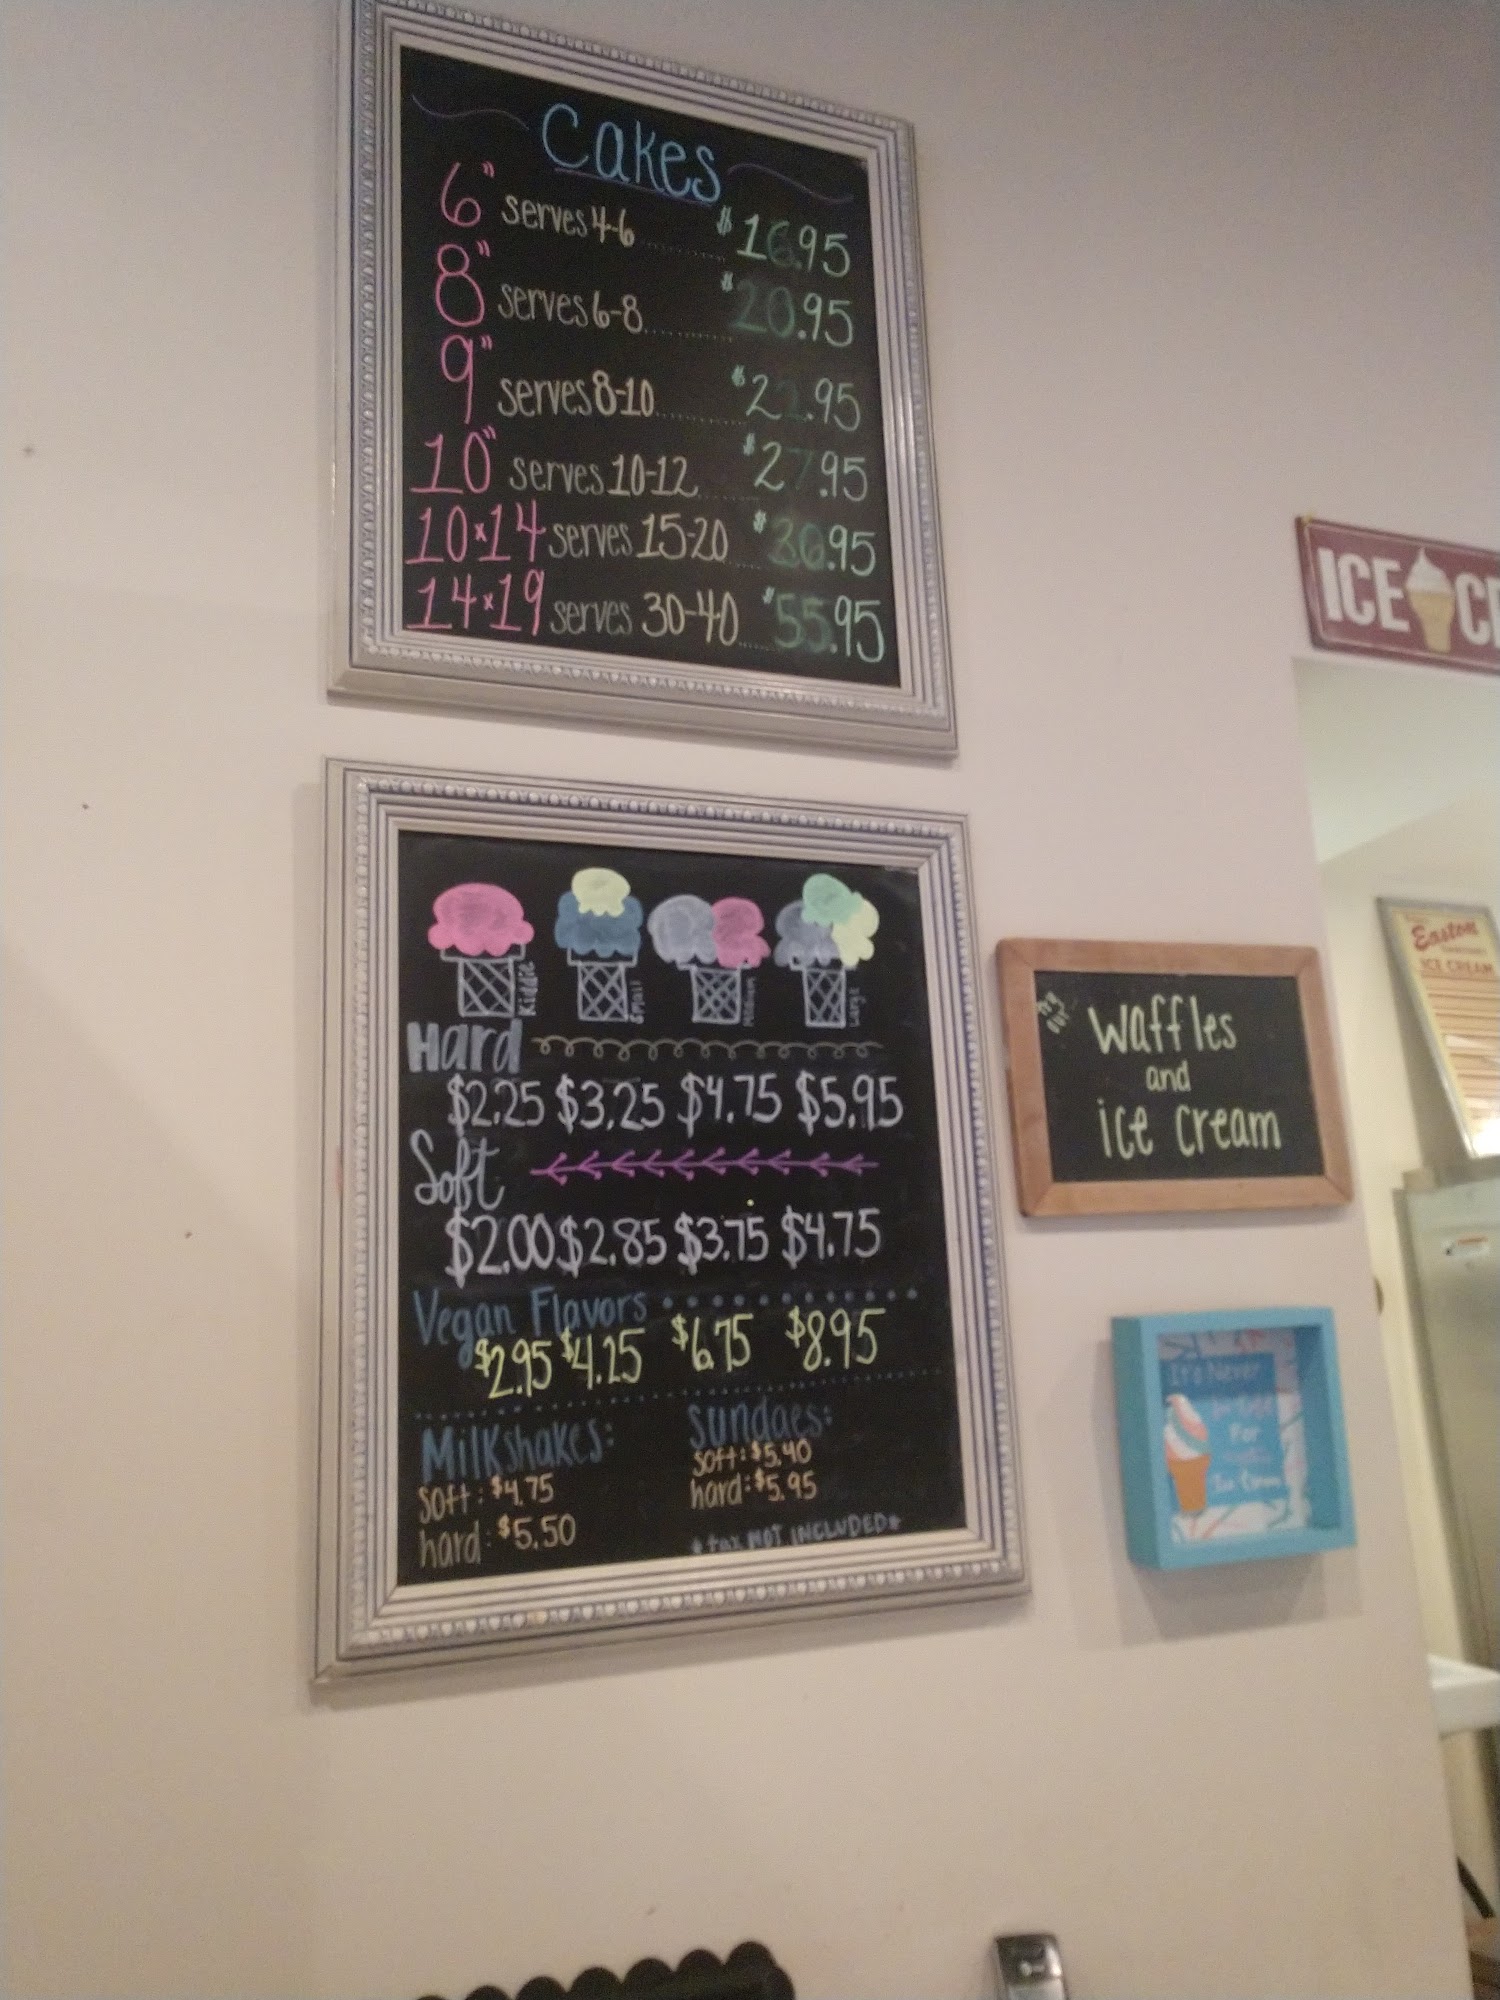 Cakes
6" serves 4-6 ........ $16.95
8" serves 6-8 ........ $20.95
9" serves 8-10 ........ $22.95
10" serves 10-12 ...... $27.95
10x14 serves 15-20 ..... $36.95
14x19 serves 30-40 ..... $55.95
Kiddie Small Medium Large
Hard
$2.25 $3.25 $4.75 $5.95
Soft
$2.00 $2.85 $3.75 $4.75
Vegan Flavors
$2.95 $4.25 $6.75 $8.95
Milkshakes:
soft: $4.75
hard: $5.50
Sundaes:
soft: $5.40
hard: $5.95
*tax NOT INCLUDED*
try
our...
Waffles
and
ice cream
ICE CR
Easton
ICE CREAM
It's Never
For
Ice Cream